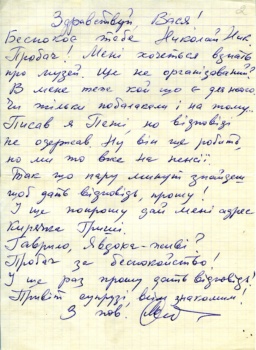 Здравствуй, Вася!
Беспокоє тебе Николай Ник.
Пробач! Мені хочеться взнать
про музей. Ще не організований?
В мене теж кой що є для нього.
Чи тільки побалакали і на тому...
Писав я Пені, но відповіді
не одержав. Ну він ще робить,
но ми то вже на пенсії.
Так що пару минут знайдеш
щоб дать відповідь, прошу!
І ще попрошу дай мені адрес
Киряжа Гриші.
Гаврило, Явдоха - живі?
Пробач за беспокойство!
І ще раз прошу дать відповідь!
Привіт супрузі, всім знакомим!
З пов.